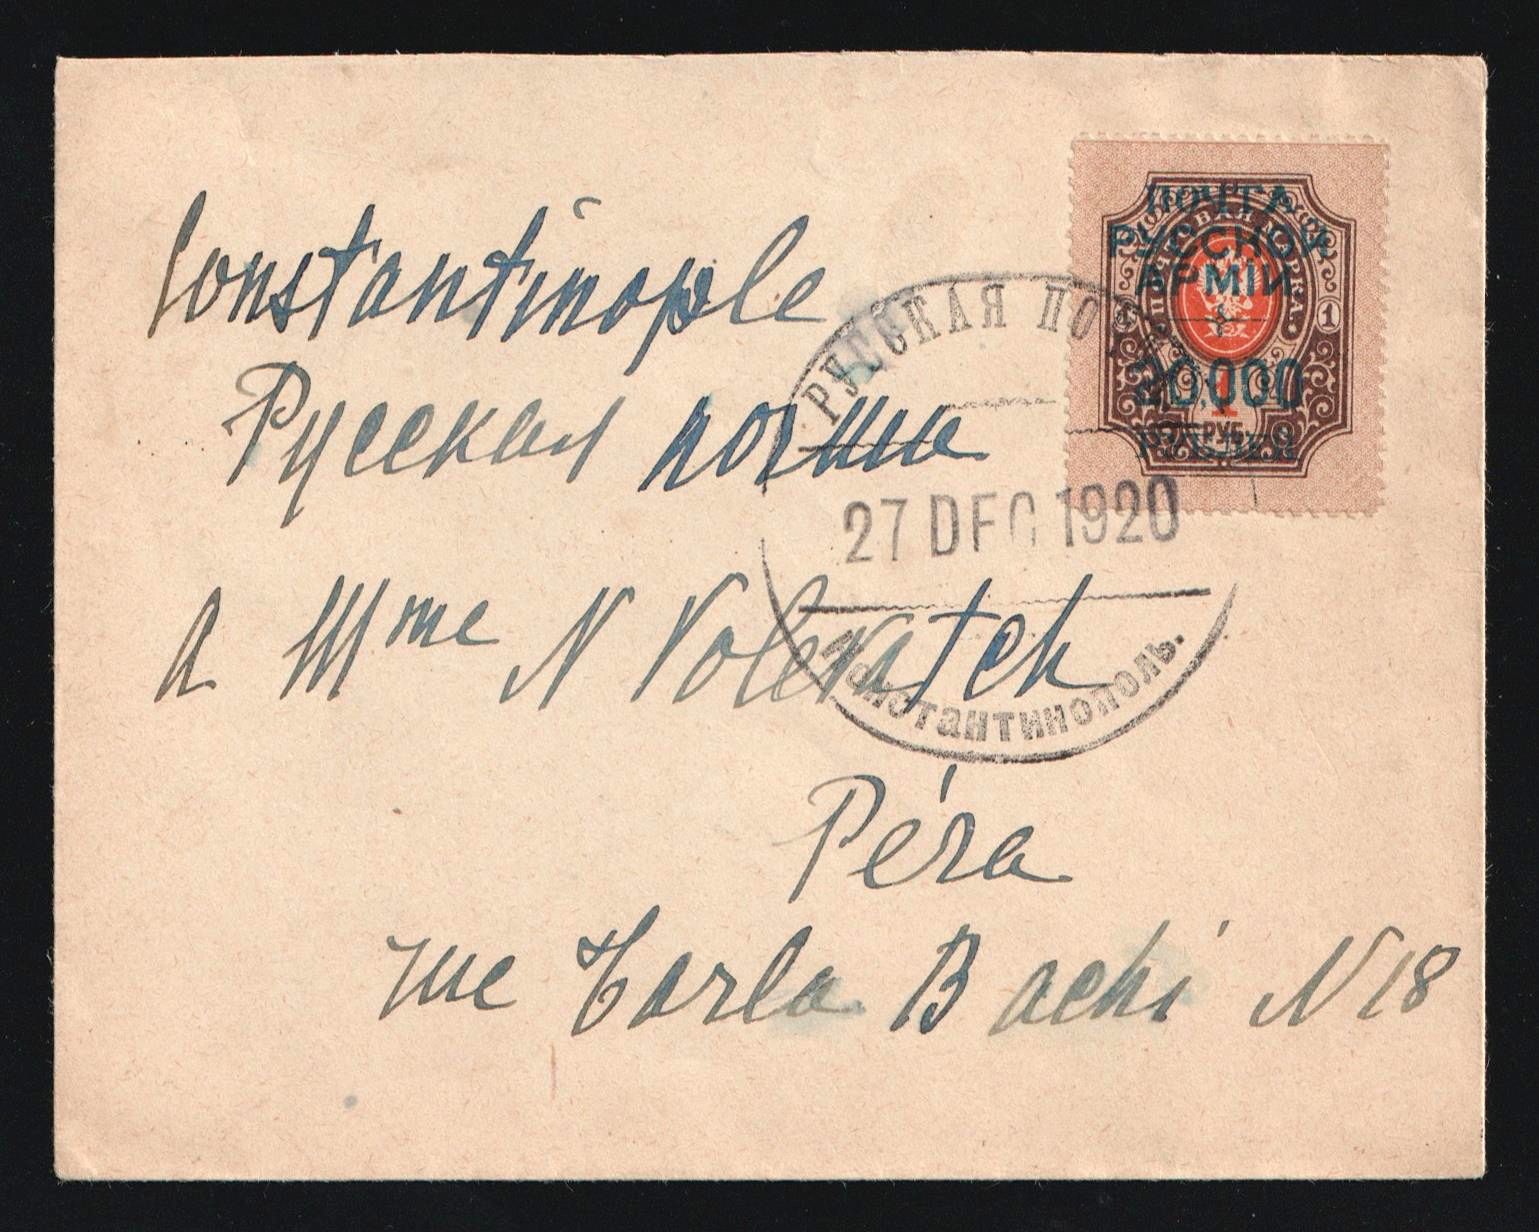 Constantinople
Русская почта
a Mme N
Péra
rue Tarla Bachi N 18
РУССКАЯ ПОЧТА
27 DEC 1920
Константинополь.
ПОЧТОВАЯ МАРКА
1 1
1
РУБ.
ПОЧТА
РУССКОЙ
АРМIИ
20.000
РУБЛЕЙ